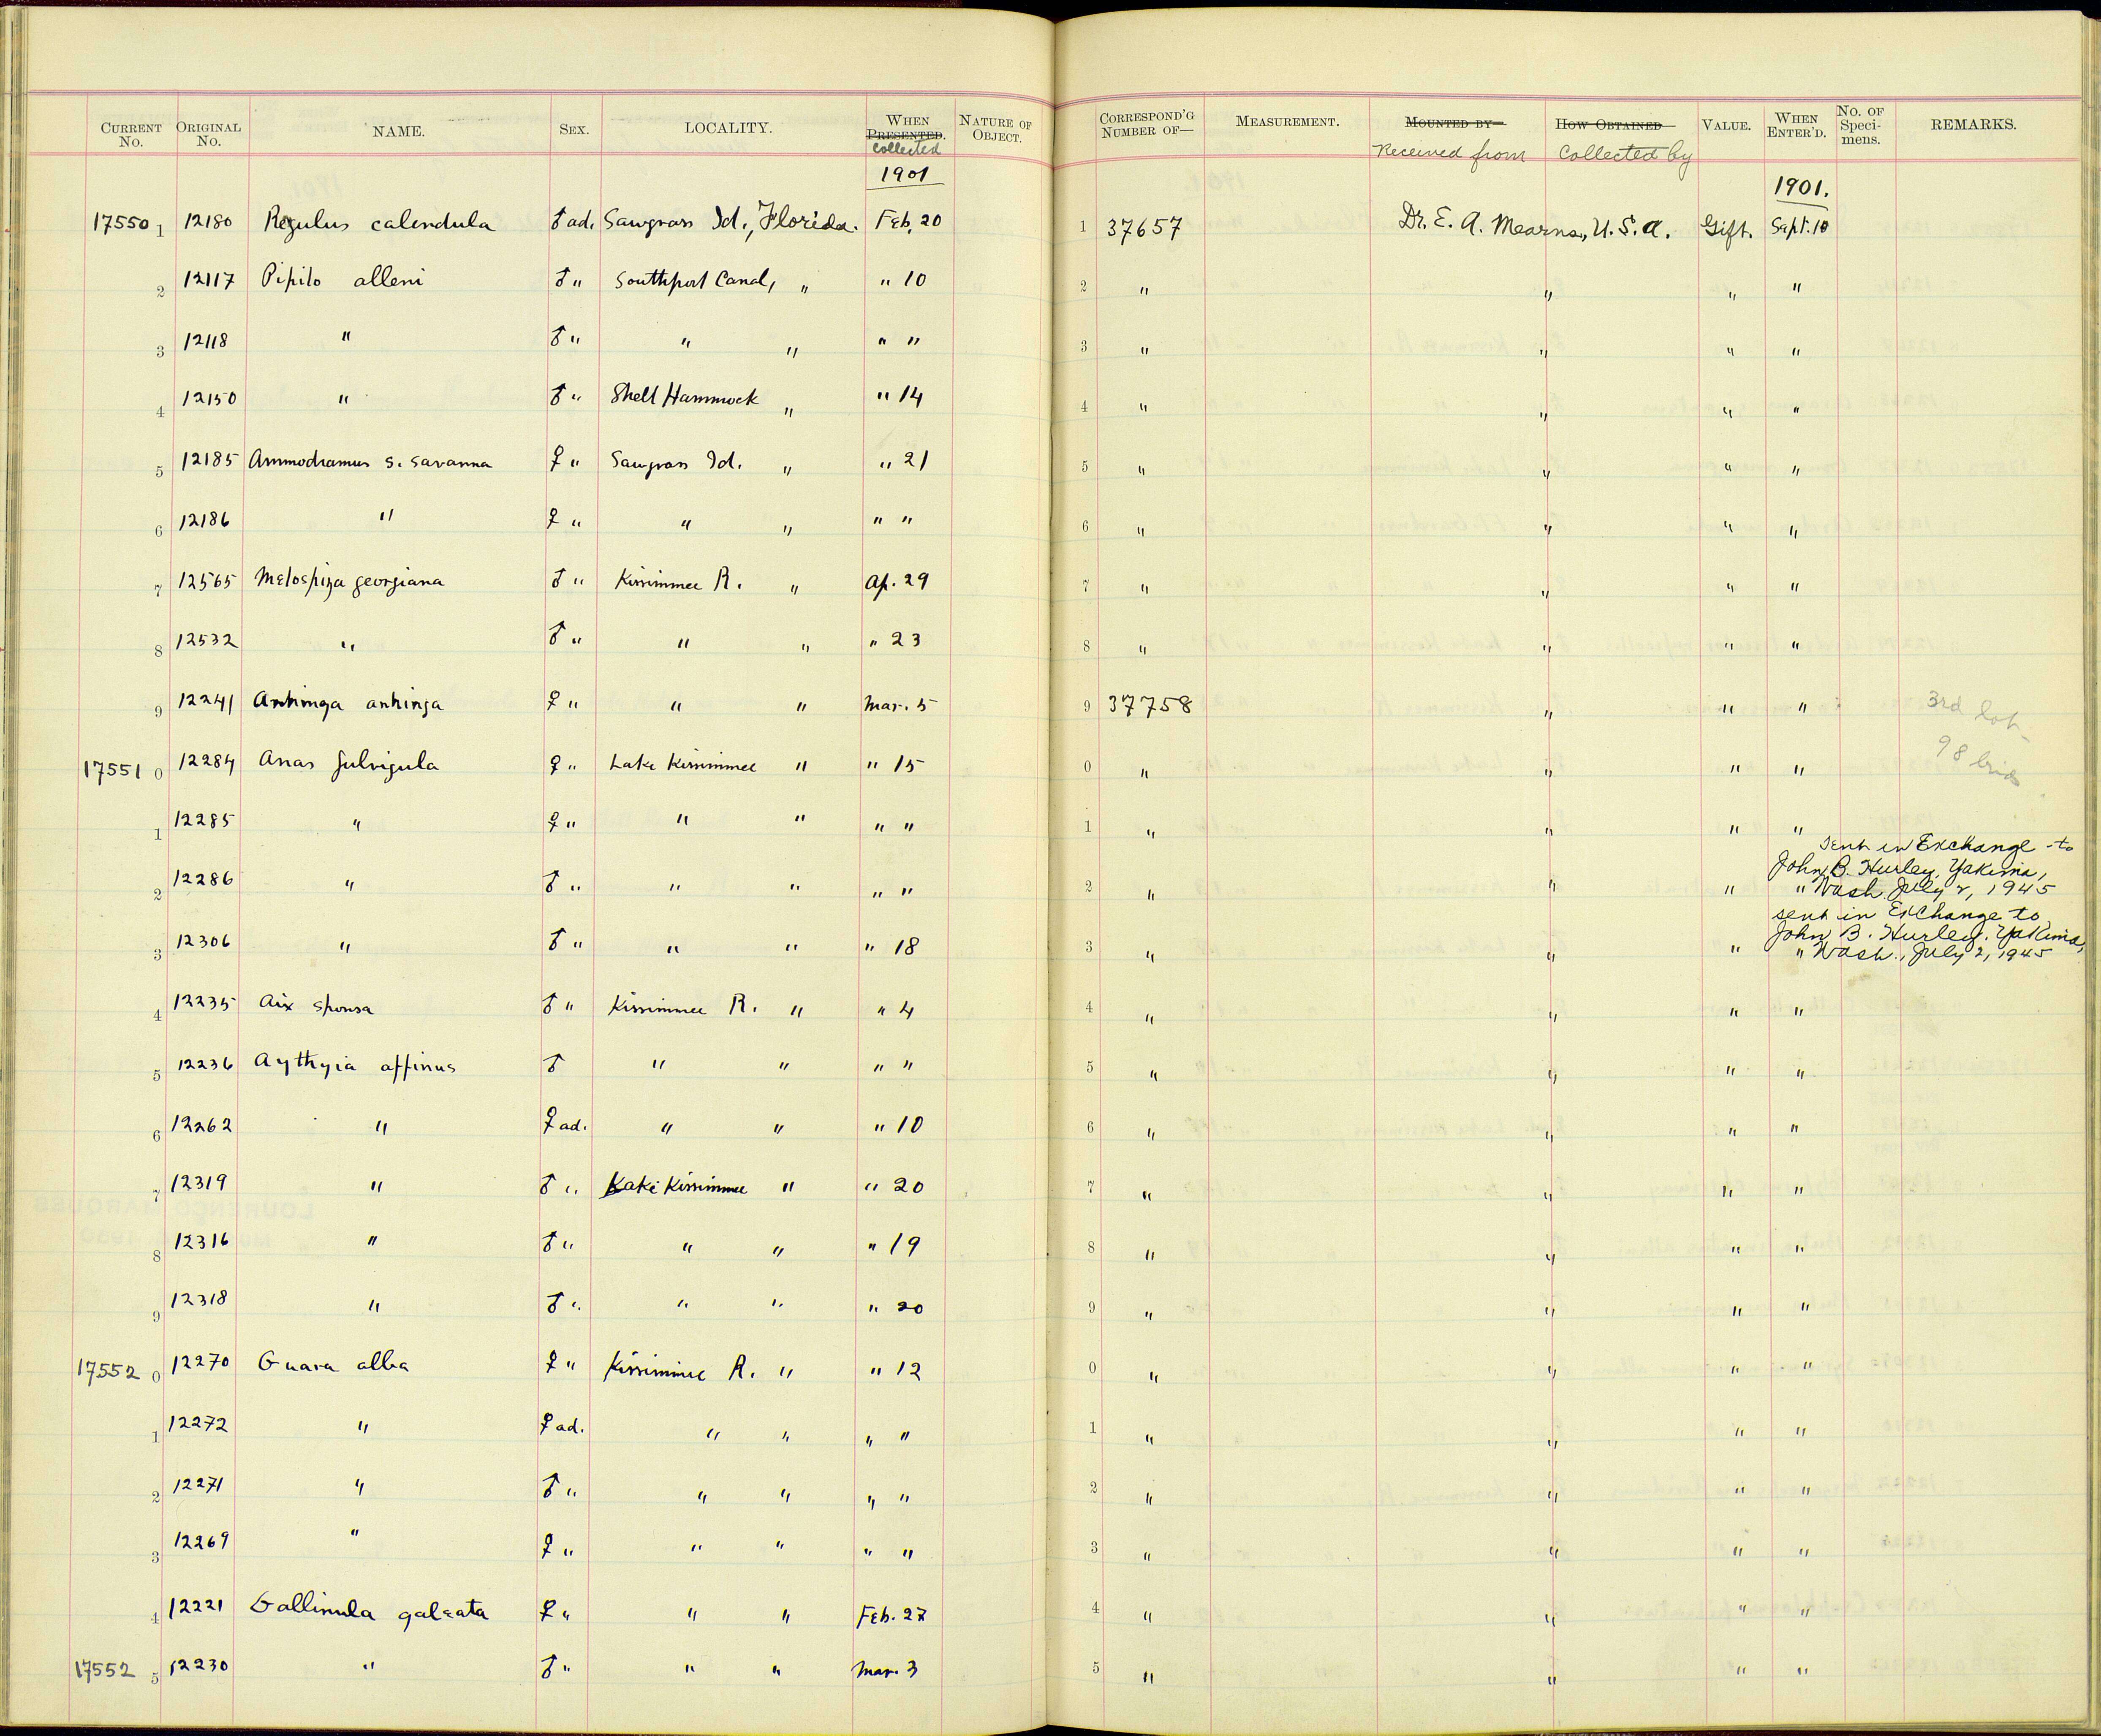 CURRENT No. ORIGINAL No. NAME. SEX. LOCALITY. WHEN PRESENTED. collected NATURE OF OBJECT. CORRESPOND'G NUMBER OF— MEASUREMENT. MOUNTED BY— Received from HOW OBTAINED— Collected by VALUE. WHEN ENTER'D. No. OF Speci-mens. REMARKS.
1901 1901.
17550 1 12180 Regulus calendula ♂ ad. Sawgrass Id., Florida. Feb, 20 1 37657 Dr. E. A. Mearns, U. S. A. Gift. Sept. 10
2 12117 Pipilo alleni ♂ " Southport Canal, " " 10 2 " " " "
3 12118 " ♂ " " " " " 3 " " " "
4 12150 " ♂ " Shell Hammock " " 14 4 " " " "
5 12185 Ammodramus s. savanna ♀ " Sawgrass Id. " " 21 5 " " " "
6 12186 " ♀ " " " " " 6 " " " "
7 12565 Melospiza georgiana ♂ " Kissimmee R. " Ap. 29 7 " " " "
8 12532 " ♂ " " " " 23 8 " " " "
9 12241 Anhinga anhinga ♀ " " " Mar. 5 9 37758 " " " 3rd lot
17551 0 12284 Anas fulvigula ♀ " Lake Kissimmee " " 15 0 " " " " 98 birds
1 12285 " ♀ " " " " " 1 " " " "
Sent in Exchange to
John B. Hurley, Yakima,
2 12286 " ♂ " " " " " 2 " " " " Wash. July 2, 1945
sent in Exchange to
John B. Hurley, Yakima,
3 12306 " ♂ " " " " 18 3 " " " " Wash., July 2, 1945
4 12235 Aix sponsa ♂ " Kissimmee R. " " 4 4 " " " "
5 12236 Aythyia affinus ♂ " " " " 5 " " " "
6 12262 " ♀ ad. " " " 10 6 " " " "
7 12319 " ♂ " Lake Kissimmee " " 20 7 " " " "
8 12316 " ♂ " " " " 19 8 " " " "
9 12318 " ♂ " " " " 20 9 " " " "
17552 0 12270 Guara alba ♀ " Kissimmee R. " " 12 0 " " " "
1 12272 " ♀ ad. " " " " 1 " " " "
2 12271 " ♂ " " " " " 2 " " " "
3 12269 " ♀ " " " " " 3 " " " "
4 12221 Gallinula galeata ♀ " " " Feb. 27 4 " " " "
17552 5 12230 " ♂ " " " Mar. 3 5 " " " "